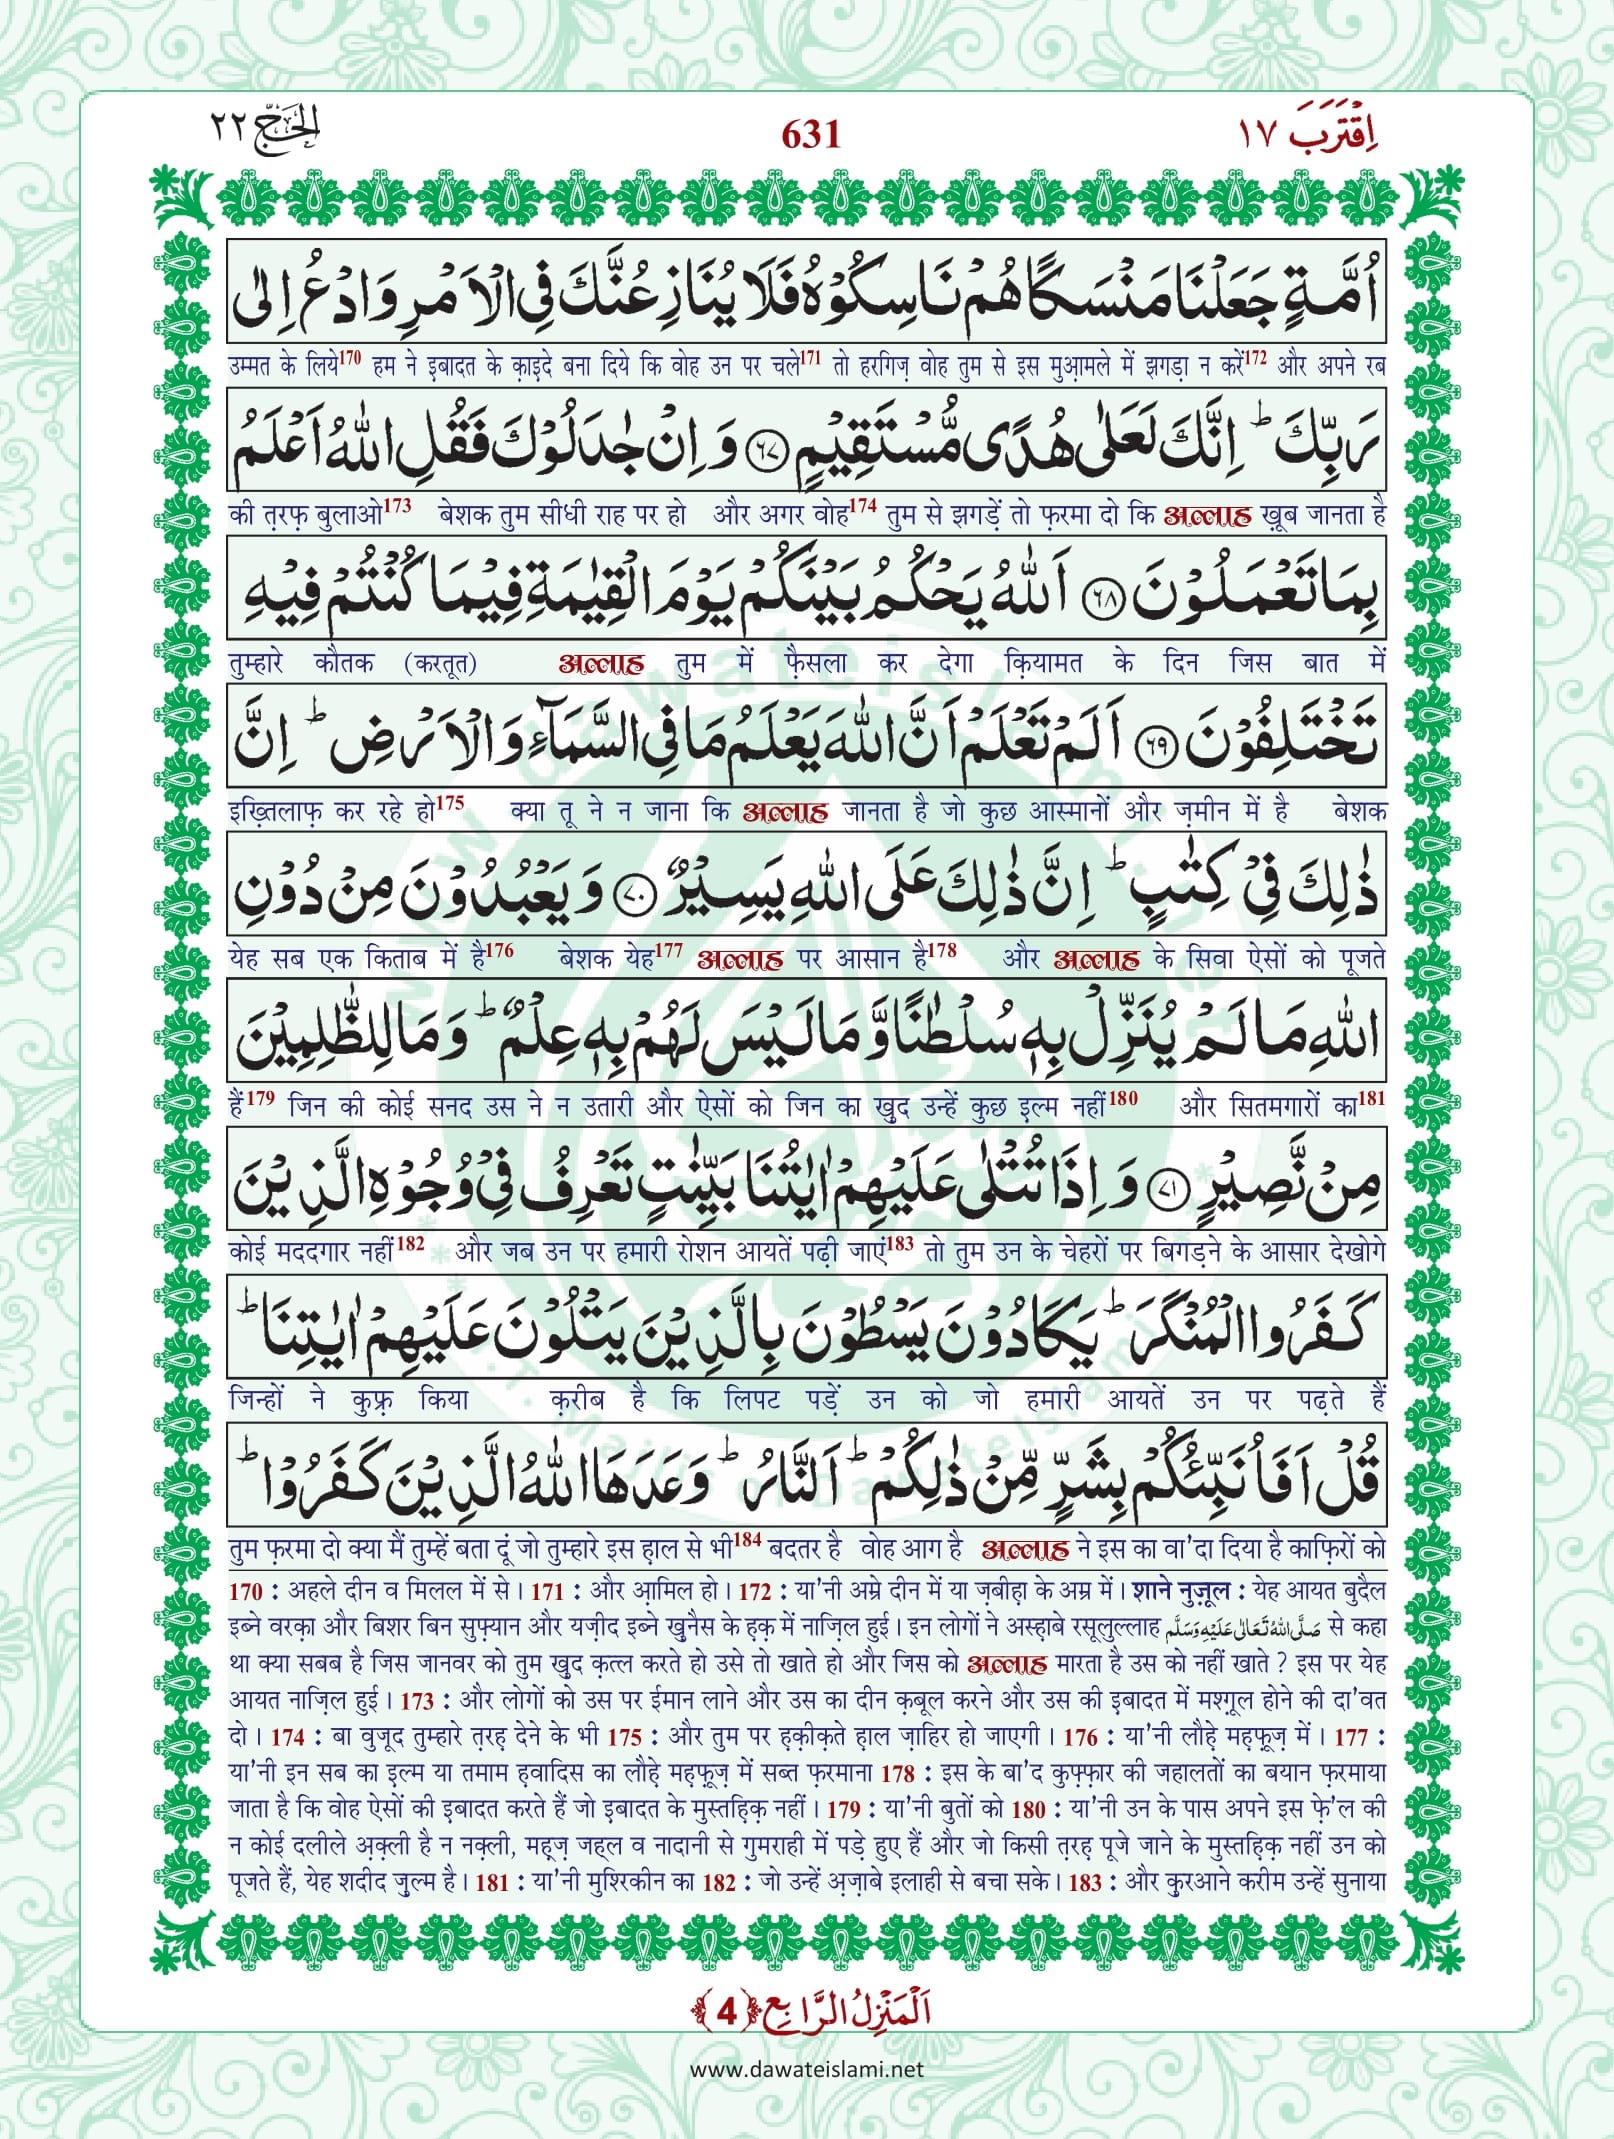 اِقْتَرَبَ ١٧
631
الْحَجّ ٢٢
اُمَّةٍ جَعَلْنَا مَنْسَكًا هُمْ نَاسِكُوْهُ فَلَا یُنَازِعُنَّكَ فِی الْاَمْرِ وَ ادْعُ اِلٰى
उम्मत के लिये170 हम ने इबादत के क़ाइदे बना दिये कि वोह उन पर चले171 तो हरगिज़ वोह तुम से इस मुआ़मले में झगड़ा न करें172 और अपने रब
رَبِّكَ ؕ اِنَّكَ لَعَلٰى هُدًى مُّسْتَقِیْمٍ ﴿۶۷﴾ وَ اِنْ جٰدَلُوْكَ فَقُلِ اللّٰهُ اَعْلَمُ
की त़रफ़ बुलाओ173 बेशक तुम सीधी राह पर हो और अगर वोह174 तुम से झगड़ें तो फ़रमा दो कि अल्लाह ख़ूब जानता है
بِمَا تَعْمَلُوْنَ ﴿۶۸﴾ اَللّٰهُ یَحْكُمُ بَیْنَكُمْ یَوْمَ الْقِیٰمَةِ فِیْمَا كُنْتُمْ فِیْهِ
तुम्हारे कौतक (करतूत) अल्लाह तुम में फ़ैसला कर देगा क़ियामत के दिन जिस बात में
تَخْتَلِفُوْنَ ﴿۶۹﴾ اَلَمْ تَعْلَمْ اَنَّ اللّٰهَ یَعْلَمُ مَا فِی السَّمَآءِ وَ الْاَرْضِ ؕ اِنَّ
इख़्तिलाफ़ कर रहे हो175 क्या तू ने न जाना कि अल्लाह जानता है जो कुछ आस्मानों और ज़मीन में है बेशक
ذٰلِكَ فِیْ كِتٰبٍ ؕ اِنَّ ذٰلِكَ عَلَى اللّٰهِ یَسِیْرٌ ﴿۷۰﴾ وَ یَعْبُدُوْنَ مِنْ دُوْنِ
येह सब एक किताब में है176 बेशक येह177 अल्लाह पर आसान है178 और अल्लाह के सिवा ऐसों को पूजते
اللّٰهِ مَا لَمْ یُنَزِّلْ بِهٖ سُلْطٰنًا وَّ مَا لَیْسَ لَهُمْ بِهٖ عِلْمٌ ؕ وَ مَا لِلظّٰلِمِیْنَ
हैं179 जिन की कोई सनद उस ने न उतारी और ऐसों को जिन का ख़ुद उन्हें कुछ इल्म नहीं180 और सितमगारों का181
مِنْ نَّصِیْرٍ ﴿۷۱﴾ وَ اِذَا تُتْلٰى عَلَیْهِمْ اٰیٰتُنَا بَیِّنٰتٍ تَعْرِفُ فِیْ وُجُوْهِ الَّذِیْنَ
कोई मददगार नहीं182 और जब उन पर हमारी रोशन आयतें पढ़ी जाएं183 तो तुम उन के चेहरों पर बिगड़ने के आसार देखोगे
كَفَرُوا الْمُنْكَرَ ؕ یَكَادُوْنَ یَسْطُوْنَ بِالَّذِیْنَ یَتْلُوْنَ عَلَیْهِمْ اٰیٰتِنَا ؕ
जिन्हों ने कुफ़्र किया क़रीब है कि लिपट पड़ें उन को जो हमारी आयतें उन पर पढ़ते हैं
قُلْ اَفَاُنَبِّئُكُمْ بِشَرٍّ مِّنْ ذٰلِكُمْ ؕ اَلنَّارُ ؕ وَعَدَهَا اللّٰهُ الَّذِیْنَ كَفَرُوْا ؕ
तुम फ़रमा दो क्या मैं तुम्हें बता दूं जो तुम्हारे इस ह़ाल से भी184 बदतर है वोह आग है अल्लाह ने इस का वा'दा दिया है काफ़िरों को
170 : अहले दीन व मिलल में से। 171 : और आ़मिल हो। 172 : या'नी अम्रे दीन में या ज़बीह़ा के अम्र में। शाने नुज़ूल : येह आयत बुदैल
इब्ने वरक़ा और बिशर बिन सुफ़्यान और यज़ीद इब्ने ख़ुनैस के ह़क़ में नाज़िल हुई। इन लोगों ने अस्ह़ाबे रसूलुल्लाह صَلَّى اللهُ تَعَالٰى عَلَيْهِ وَسَلَّم से कहा
था क्या सबब है जिस जानवर को तुम ख़ुद क़त्ल करते हो उसे तो खाते हो और जिस को अल्लाह मारता है उस को नहीं खाते ? इस पर येह
आयत नाज़िल हुई। 173 : और लोगों को उस पर ईमान लाने और उस का दीन क़बूल करने और उस की इबादत में मश्ग़ूल होने की दा'वत
दो। 174 : बा वुजूद तुम्हारे त़रह़ देने के भी 175 : और तुम पर ह़क़ीक़ते ह़ाल ज़ाहिर हो जाएगी। 176 : या'नी लौह़े मह़फ़ूज़ में। 177 :
या'नी इन सब का इल्म या तमाम ह़वादिस का लौह़े मह़फ़ूज़ में सब्त फ़रमाना 178 : इस के बा'द कुफ़्फ़ार की जहालतों का बयान फ़रमाया
जाता है कि वोह ऐसों की इबादत करते हैं जो इबादत के मुस्तह़िक़ नहीं। 179 : या'नी बुतों को 180 : या'नी उन के पास अपने इस फ़े'ल की
न कोई दलीले अ़क़्ली है न नक़्ली, मह़्ज़ जह्ल व नादानी से गुमराही में पड़े हुए हैं और जो किसी त़रह़ पूजे जाने के मुस्तह़िक़ नहीं उन को
पूजते हैं, येह शदीद ज़ुल्म है। 181 : या'नी मुश्रिकीन का 182 : जो उन्हें अ़ज़ाबे इलाही से बचा सके। 183 : और क़ुरआने करीम उन्हें सुनाया
اَلْمَنْزِلُ الرَّابِع ﴿4﴾
www.dawateislami.net